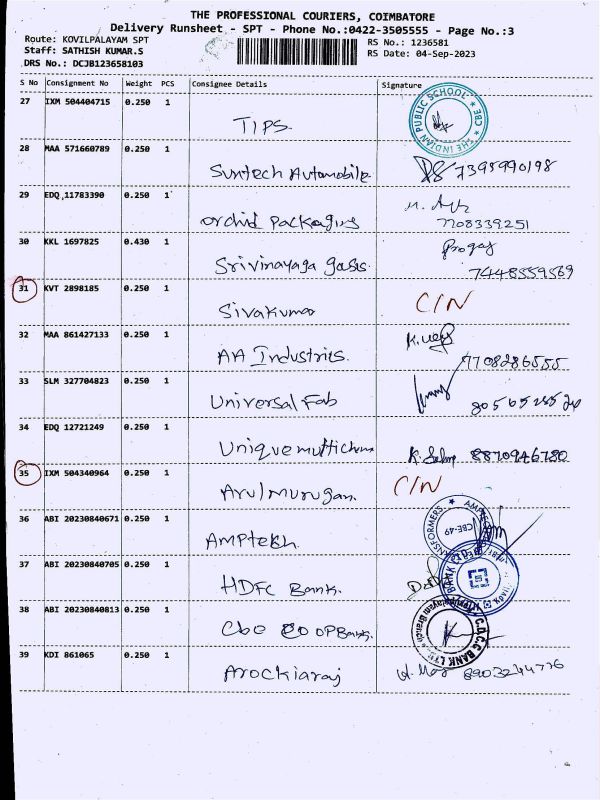 THE PROFESSIONAL COURIERS, COIMBATORE
Delivery Runsheet - SPT - Phone No.:0422-3505555 - Page No.:3
Route: KOVILPALAYAM SPT
RS No.: 1236581
Staff: SATHISH KUMAR.S
RS Date: 04-Sep-2023
DRS No.: DCJB123658103
S No Consignment No Weight PCS Consignee Details Signature
27 IXM 504404715 0.250 1 TIPS. THE INDIAN PUBLIC SCHOOL * CBE *
28 MAA 571660789 0.250 1 Suntech Automobile 7395990198
29 EDQ 11783390 0.250 1 Orchid Packaging 7708339251
30 KKL 1697825 0.430 1 Srivinayaga gases. 7448559569
31 KVT 2898185 0.250 1 Sivakumar C/N
32 MAA 861427133 0.250 1 AA Industries. 7708286555
33 SLM 327704823 0.250 1 Universal Fab
34 EDQ 12721249 0.250 1 Unique multichem 8870946780
35 IXM 504340964 0.250 1 Arulmurugan. C/N
36 ABI 20230840671 0.250 1 AMPtekh CBE-49
37 ABI 20230840705 0.250 1 HDFC Bank.
38 ABI 20230840813 0.250 1 Cbe COOP Bank. C.D.C.C BANK LTD.
39 KDI 861065 0.250 1 Arockiaraj 8903244776